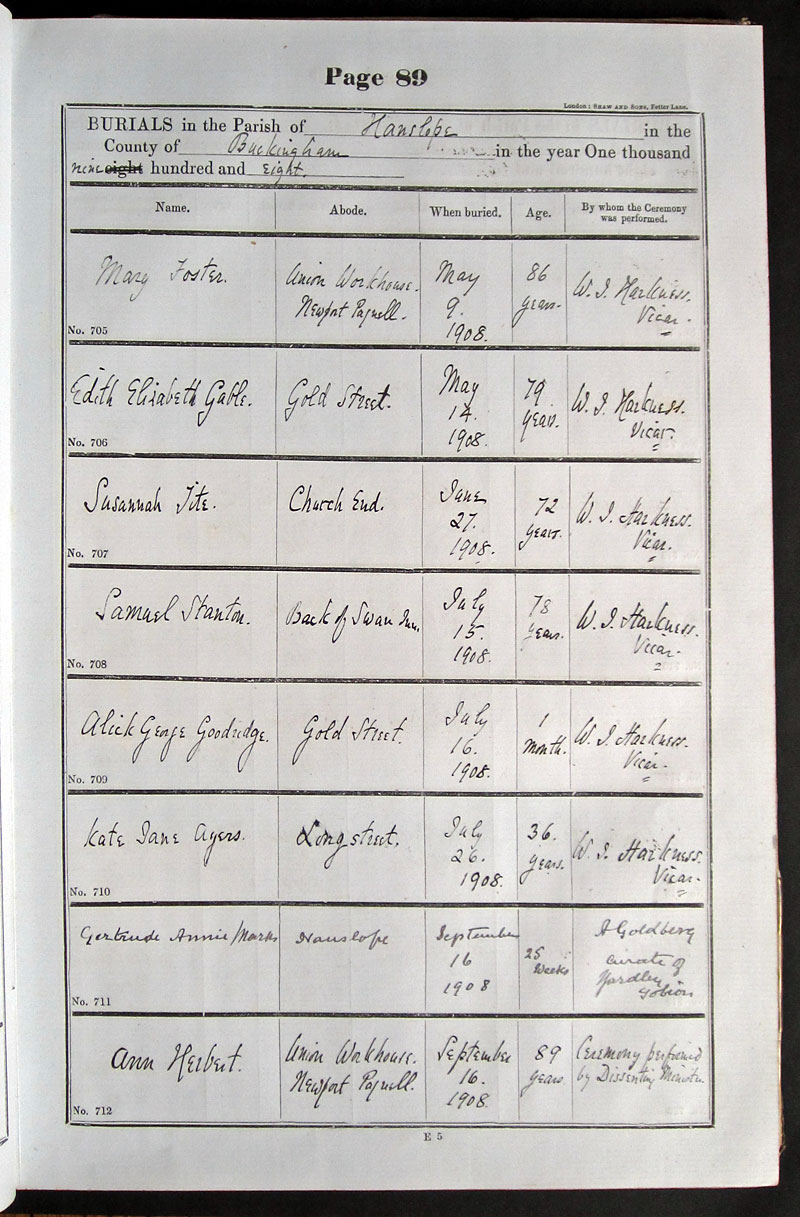 Page 89
London: SHAW AND SONS, Fetter Lane.
BURIALS in the Parish of Hanslope in the
County of Buckingham in the year One thousand
nine eight hundred and Eight.
Name. Abode. When buried. Age. By whom the Ceremony was performed.
Mary Foster.
Union Workhouse.
Newport Pagnell.
May
9.
1908.
86
years.
W. J. Harkness.
Vicar.
No. 705
Edith Elizabeth Gable.
Gold Street.
May
14.
1908.
79
years.
W. J. Harkness.
Vicar.
No. 706
Susannah Tite.
Church End.
June
27.
1908.
72
years.
W. J. Harkness.
Vicar.
No. 707
Samuel Stanton.
Back of Swan Inn.
July
15.
1908.
78
years.
W. J. Harkness.
Vicar.
No. 708
Alick George Goodridge.
Gold Street.
July
16.
1908.
1
month.
W. J. Harkness.
Vicar.
No. 709
Kate Jane Ayers.
Long street.
July
26.
1908.
36.
years.
W. J. Harkness.
Vicar.
No. 710
Gertrude Annie Marks
Hanslope
September
16
1908
25
Weeks
A Goldberg
curate of
Yardley
Gobion
No. 711
Ann Herbert.
Union Workhouse.
Newport Pagnell.
September
16.
1908.
89
years
Ceremony performed
by Dissenting Minister.
No. 712
E 5